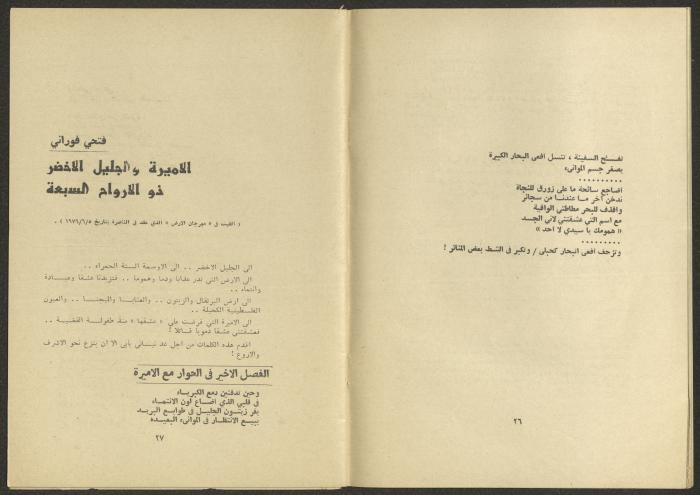 تقلع السفينة ، تنسل افعى البحار الكبيرة
يصفر جسم الموانىء
..........
اضاجع سائحة ما على زورق للنجاة
ندخن آخر ما عندنا من سجائر
واقذف للبحر مطاطتي الواقية
مع اسم التي عشقتني لاني الجسد
« همومك يا سيدي لا احد »
.........
وتزحف افعى البحار كحبلى / وتكبر في الشط بعض المنائر !
٢٦
فتحي فوراني
الاميرة والجليل الاخضر
ذو الارواح السبعة
( القيت في « مهرجان الارض » الذي عقد في الناصرة بتاريخ ١٩٧٦/٦/٥ ) .
الى الجليل الاخضر .. الى الاوسمة الستة الحمراء ..
الى الارض التي تدر عذابا ودما وهموما .. فتزيدنا عشقا وعبادة
وانتماء ..
الى ارض البرتقال والزيتون .. والعتابا والميجنا .. والعيون
الفلسطينية الكحيلة ..
الى الاميرة التي فرضت علي « عشقها » منذ طفولة القضية ..
فعشقتني عشقا دمويا قاتلا !
اقدم هذه الكلمات من اجل غد نيساني يأبى الا ان ينزع نحو الاشرف
والاروع !
الفصل الاخير في الحوار مع الاميرة
وحين تدفنين دمع الكبرياء
في قلبي الذي اضاع لون الانتماء
يفر زيتون الجليل في طوابع البريد
يبيع الانتظار في الموانىء البعيده
٢٧